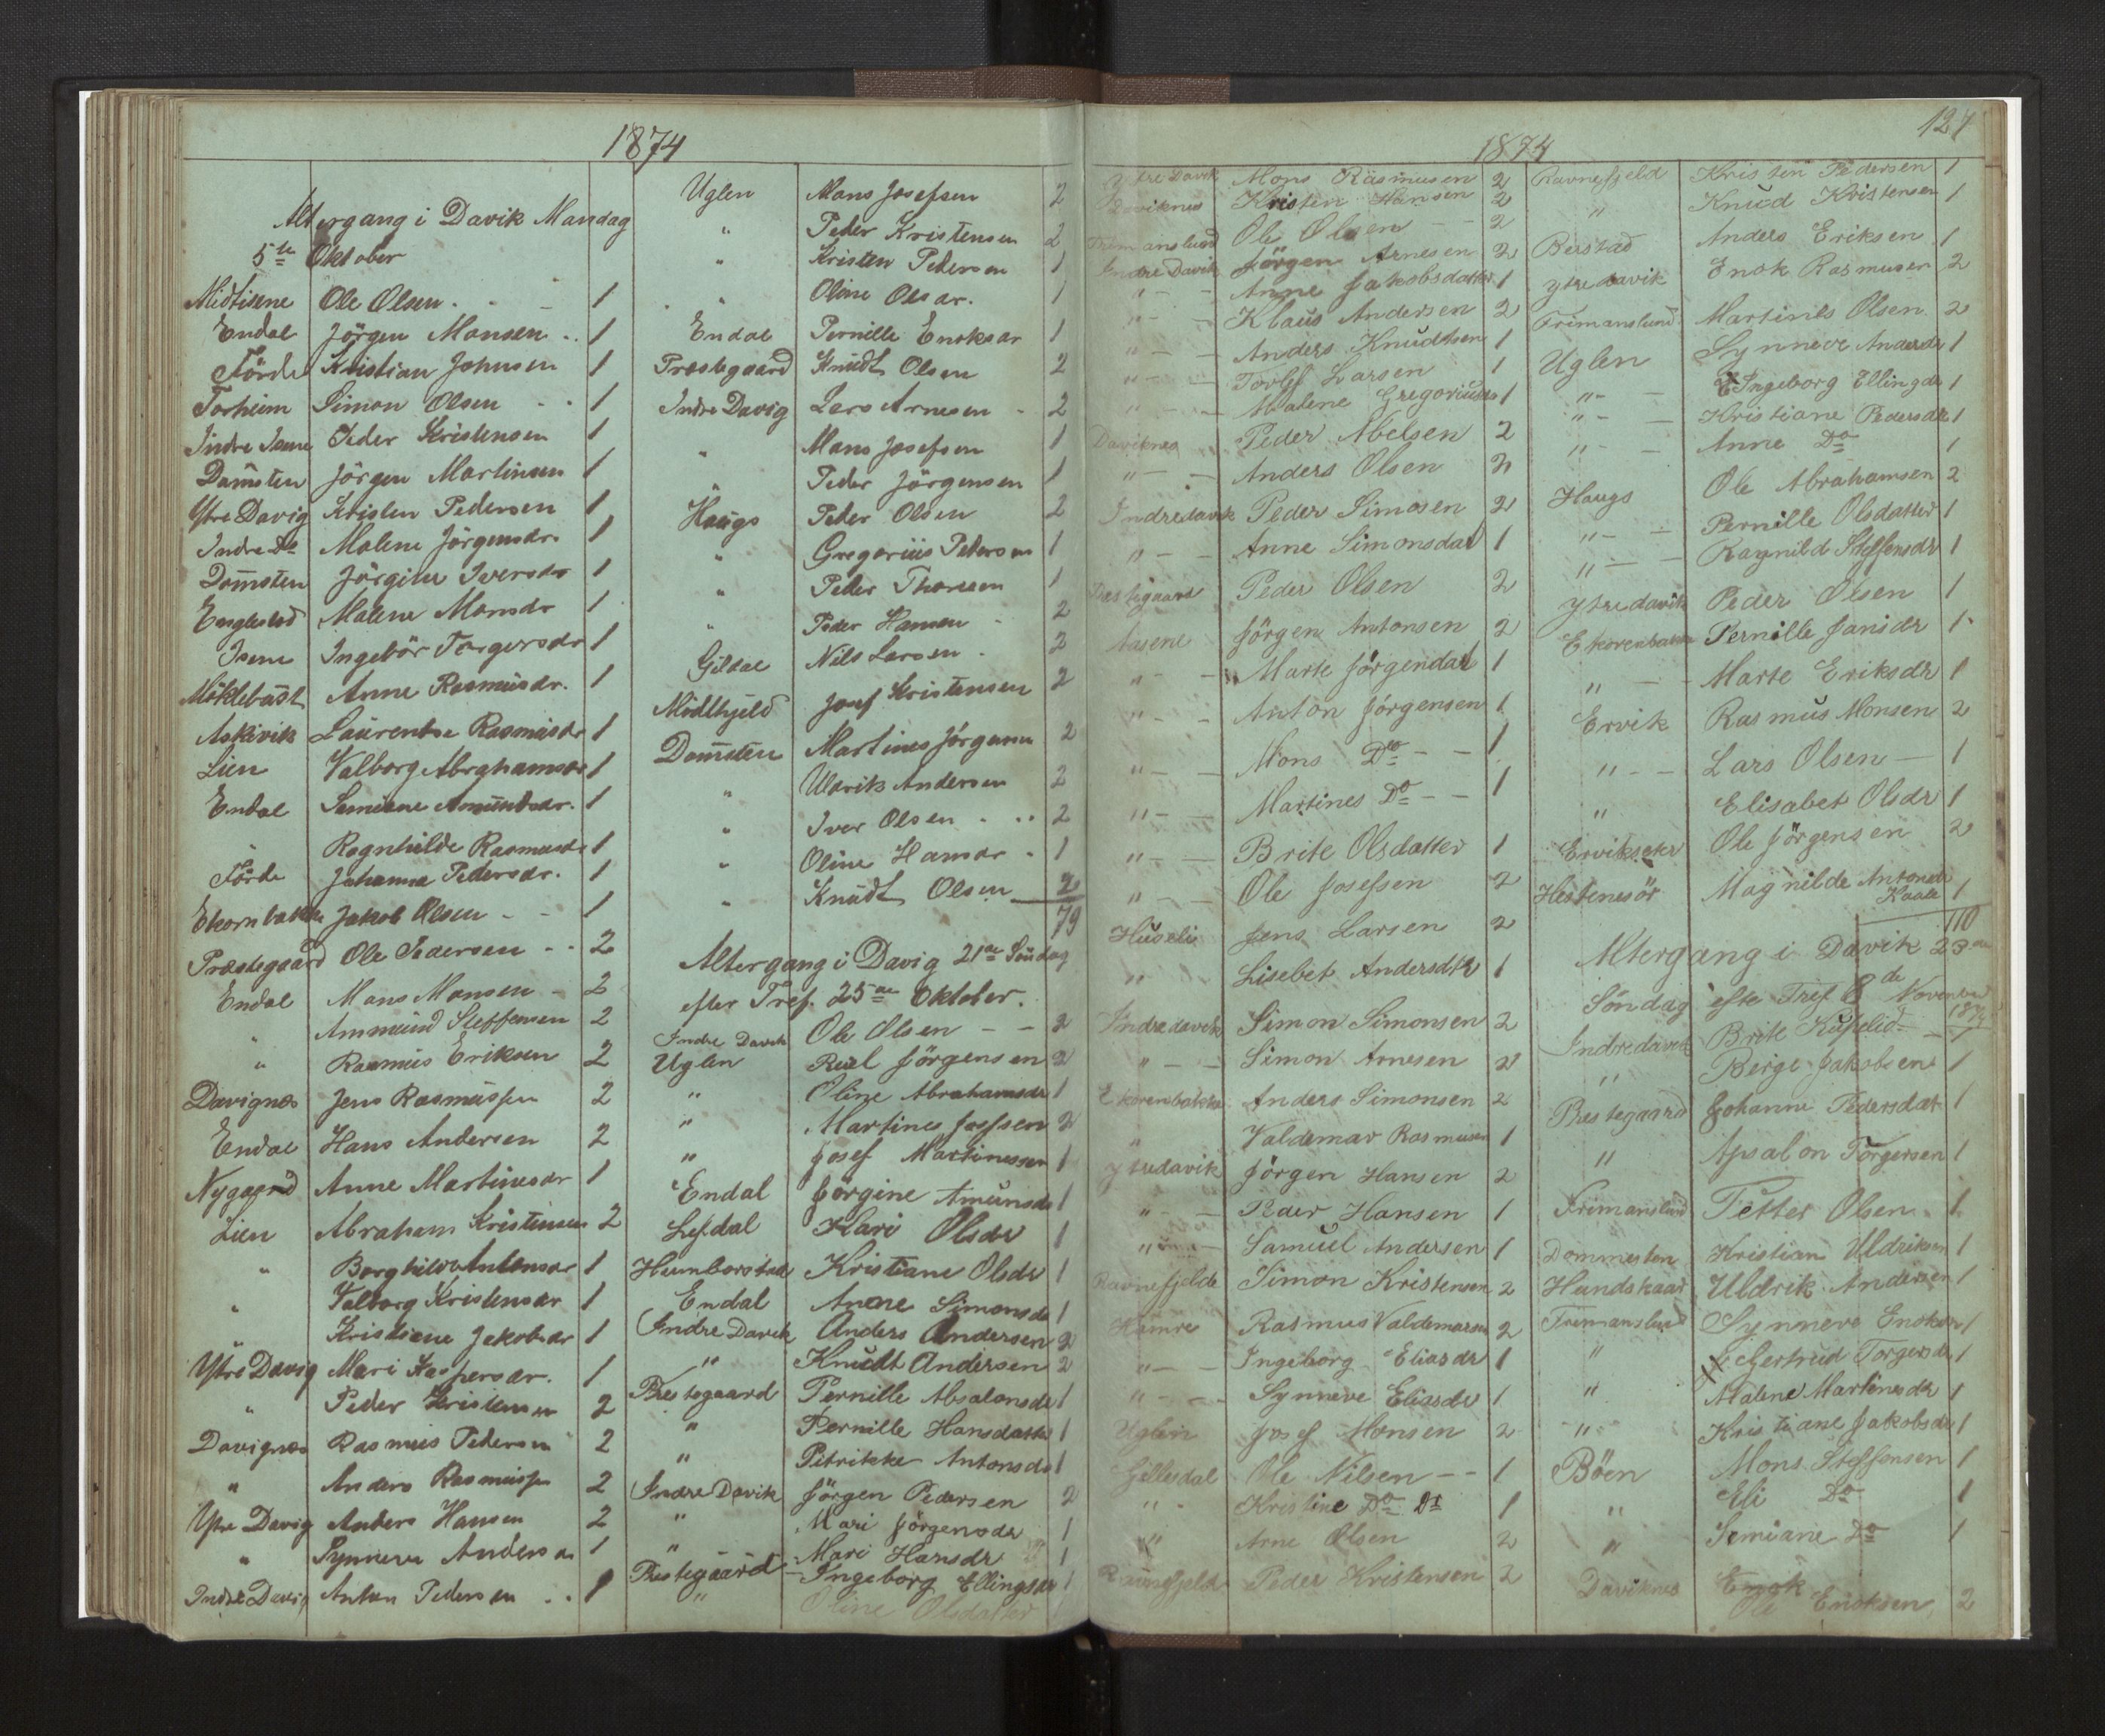 1874
Altergang i Davik Mandag
5te Oktober
Midtisene Ole Olsen. - - 1
Endal Jörgen Monsen .. 1
Förde Kristian Johnsen 1
Torheim Simon Olsen - - 1
Indre Isene Peder Kristensen 1
Domsten Jörgen Martinsen 1
Ytre Davig Kristen Pedersen 1
Indre Do Malene Jörgensdr. 1
Domsten Jörgine Iversdr 1
Englestad Malene Monsdr 1
Isene Ingebör Torgersdr 1
Möklebust Anne Rasmusdr. 1
Askivik Laurentse Rasmusdr 1
Lien Valborg Abrahamsdr 1
Endal Semiane Amundsdr. 1
" Ragnhilde Rasmusdr 1
Förde Johanna Pedersdr. 1
Ekornbakke Jakob Olsen - - 1
Præstegaard Ole Pedersen - - 2
Endal Mons Monsen - 2
" Ammund Steffensen 2
" Rasmus Eriksen 2
Davignes Jens Rasmussen 2
Endal Hans Andersen 2
Nygaard Anne Martinesdr 1
Lien Abraham Kristensen 2
" Borghilde Antonsdr 1
" Valborg Kristensdr 1
" Kristiane Jakobsdr 1
Ytre Davig Mari Kaspersdr. 1
" Peder Kristensen 2
Davignes Rasmus Pedersen 2
" Anders Rasmussen 2
Ytre Davig Anders Hansen 2
" Synneve Andersdr 1
Indre Davig Anton Pedersen .. 1
Uglen Mons Josefsen 2
" Peder Kristensen 2
" Kristen Pedersen 1
" Oline Olsdr. 1
Endal Pernille Enoksdr 1
Præstegaard Knudt Olsen 2
Indre Davig Lars Arnesen - 2
" Mons Josefsen 1
" Peder Jörgensen 1
Haugs Peder Olsen 2
" Gregorius Petersen 1
" Peder Thoresen 1
" Peder Hansen - 2
Gildal Nils Larsen - 2
Midthjeld Josef Kristensen 2
Domsten Martines Jörgensen 2
" Uldrik Andersen 2
" Iver Olsen . .. 2
" Oline Hansdr - 1
" Knudt Olsen 2
79
Altergang i Davig 21de Söndag
efter Tref. 25de Oktober.
Indre Davik Ole Olsen - - 2
Uglen Jörgensen 2
" Oline Abrahamsdr 1
" Martines Josefsen 2
" Josef Martinessen 1
Endal Jörgine Amunsdr 1
Lefdal Kari Olsdr 1
Humborstad Kristiane Olsdr 1
Endal Anne Simonsdr 1
Indre Davik Anders Andersen 2
" Knudt Andersen 2
Prestegaard Pernille Absalonsdr 1
" Pernille Hansdatter 1
" Petrikke Antonsdr 1
Indre Davik Jörgen Pedersen 2
" Mari Jörgensdr 1
" Mari Hansdr 1
Prestegaard Ingeborg Ellingsdr 1
" Oline Olsdatter
127
1874
Ytre Davik Mons Rasmusen 2
Daviknes Kristen Hansen 2
Frimanslund Ole Olsen - - 2
Indre Davik Jörgen Arnesen 2
" - - Anne Jakobsdatter 1
" - - Klaus Andersen 2
" - - Anders Knudtsen 1
" - - Torlef Larsen 1
" - - Malene Gregoriusdr 1
Daviknes Peder Abelsen 2
" - - Anders Olsen 2
Indredavik Peder Simosen 2
" - - Anne Simonsdat 1
Prestegaard Peder Olsen 2
Aasene Jörgen Antonsen 2
" - - Marte Jörgendat 1
" - - Anton Jörgensen 1
Mons Do - - 1
" - - Martines Do - - 1
" - - Brite Olsdatter 1
" - - Ole Josefsen 2
Huseli Jens Larsen 2
" Lisebet Andersdtr 1
Indredavik Simon Simonsen 2
" - - Simon Arnesen 2
Ekorenbakke Anders Simonsen 2
" Valdemar Rasmusen 1
Ytredavik Jörgen Hansen 2
" - - Peder Hansen 1
" - - Samuel Andersen 1
Ravnefjelde Simon Kristensen 2
Hamre Rasmus Valdemarsen 2
" - - Ingeborg Eliasdr 1
" - - Synneve Eliasdr 1
Uglen Josef Monsen 2
Gillesdal Ole Nilsen - - 1
" - Kristine Do Dt 1
" Arne Olsen 2
Raunefjeld Peder Kristensen 2
Ravnefjeld Kristen Pedersen 1
" Knud Kristensen 1
Berstad Anders Eriksen 1
Ytredavik Enok Rasmusen 2
Frimanslund Martines Olsen 2
Uglen Synneve Andersdr 1
" - - Ingeborg Ellingdr 1
" - - Kristiane Pedersdr 1
" - - Anne Do 1
Haugs Ole Abrahamsen 2
" - - Pernille Olsdatter 1
" - - Ragnild Steffensdr 1
Ytredavik Peder Olsen 1
Ekorenbakke Pernille Jansdr 1
" - - Marte Eriksdr 1
Ervik Rasmus Monsen 2
" - - Lars Olsen - 1
" Elisabet Olsdr 1
Erviksetr Ole Jörgensen 2
Hestenesör Magnilde Antonsdr
Kaale 1
110
Altergang i Davik 23de
Söndag efte Tref 8de November
1874
Indredavik Brite - 1
" Berge Jakobsen 1
Prestegaard Johanne Pedersdat 1
" Apsalon Torgersen 1
Frimanslund Petter Olsen 1
Dommesten Kristian Uldriksen 1
Hundskaar Uldrik Andersen 1
Frimanslund Synneve Enoksdr 1
" Gertrud Torgersdr 1
" Malene Martinesdr 1
" Kristiane Jakobsdr 1
Böen Mons Steffensen 1
" Eli Do 1
" Semiane Do 1
Daviknes Enok
Ole Enoksen 2